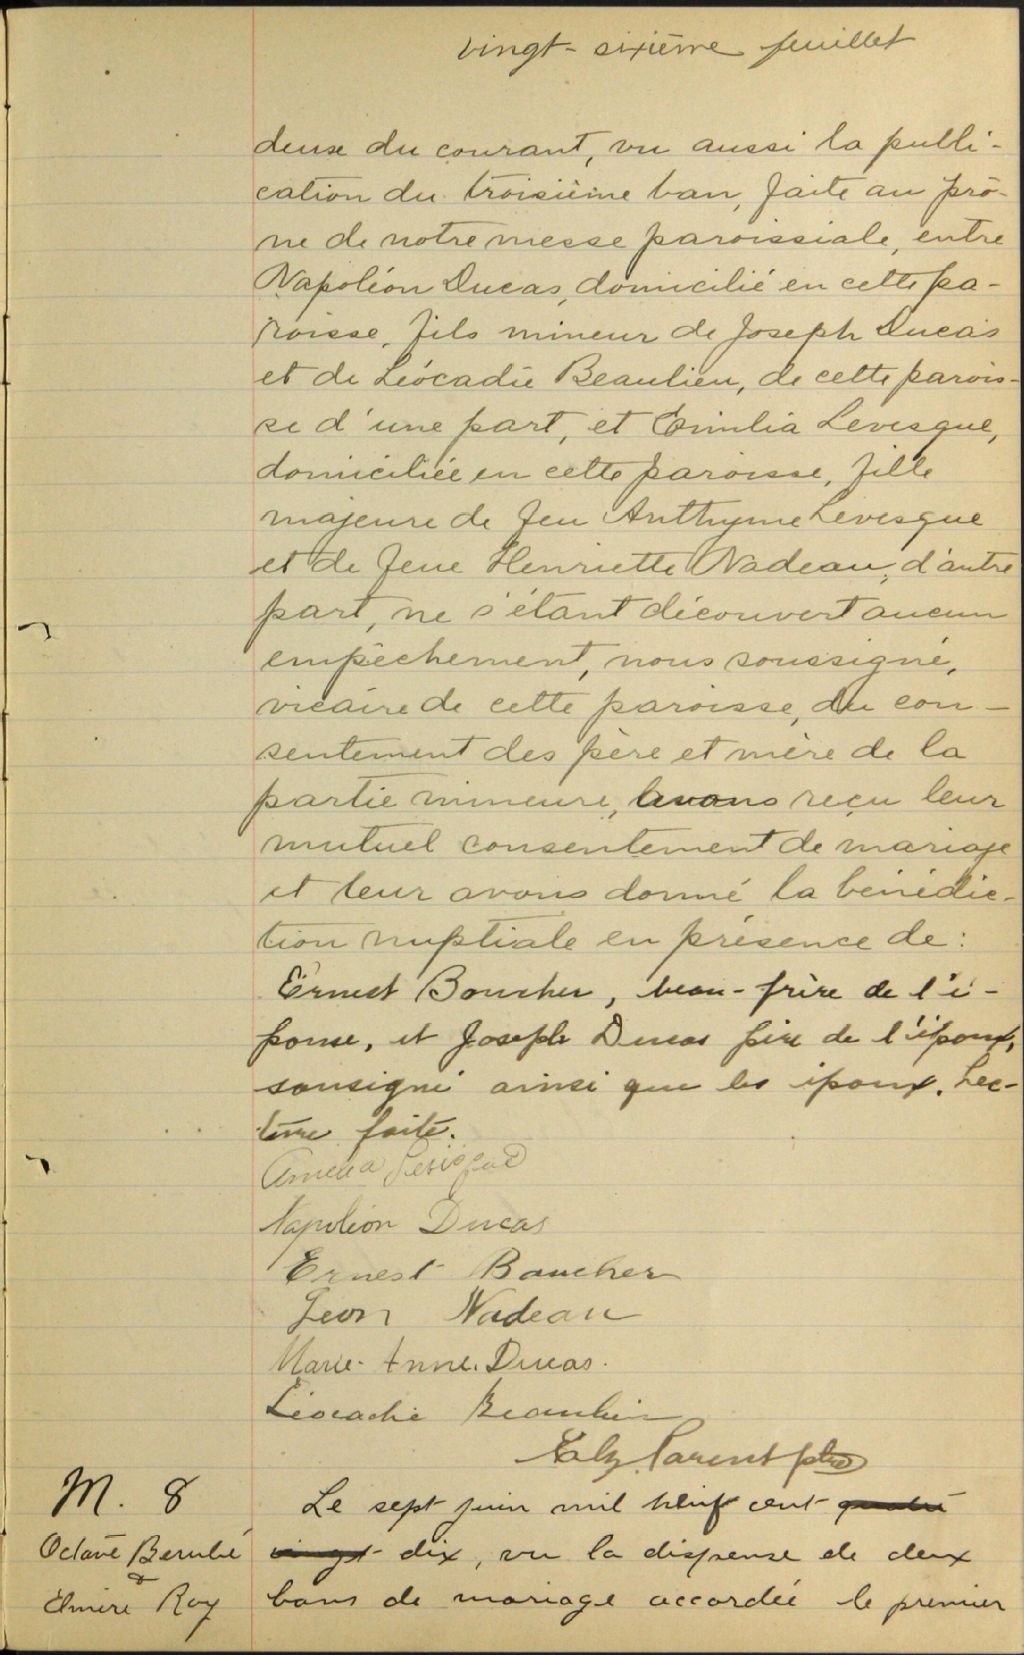 vingt-sixième feuillet
deux du courant, vu aussi la publi-
cation du troisième ban, faite au prô-
ne de notre messe paroissiale, entre
Napoléon Ducas, domicilié en cette pa-
roisse, fils mineur de Joseph Ducas
et de Léocadie Beaulieu, de cette parois-
se d'une part, et Emilia Levesque,
domiciliée en cette paroisse, fille
majeure de feu Anthyme Levesque
et de feue Henriette Nadeau, d'autre
part, ne s'étant découvert aucun
empêchement, nous soussigné,
vicaire de cette paroisse, du con-
sentement des père et mère de la
partie mineure, avons reçu leur
mutuel consentement de mariage
et leur avons donné la bénédic-
tion nuptiale en présence de:
Ernest Boucher, beau-frère de l'é-
pouse, et Joseph Ducas père de l'époux,
sousigné ainsi que les époux. Lec-
ture faite.
Napoléon Ducas
Ernest Boucher
Léon Nadeau
Marie-Anne Ducas.
Léocadie Beaulieu
Parent ptre
M. 8
Octave Berubé
&
Elmire Roy
Le sept juin mil neuf cent quatre
vingt dix, vu la dispense de deux
bans de mariage accordée le premier